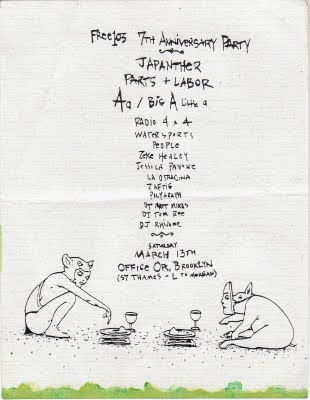 FREE103 7TH ANNIVERSARY PARTY
JAPANTHER
PARTS + LABOR
Aa / BIG A little a
RADIO 4 x 4
WATERSPORTS
PEOPLE
ZEKE HEALEY
JESSICA PAVONE
LA OTRACINA
ZAETIG
DJ MATT MIKAS
DJ TOM ROE
DJ
SATURDAY
MARCH 13TH
OFFICE OPS, BROOKLYN
(57 THAMES - L TO MORGAN)